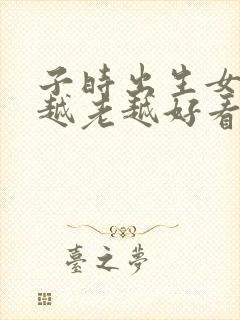 子時出生女
越老越好看
臺之夢